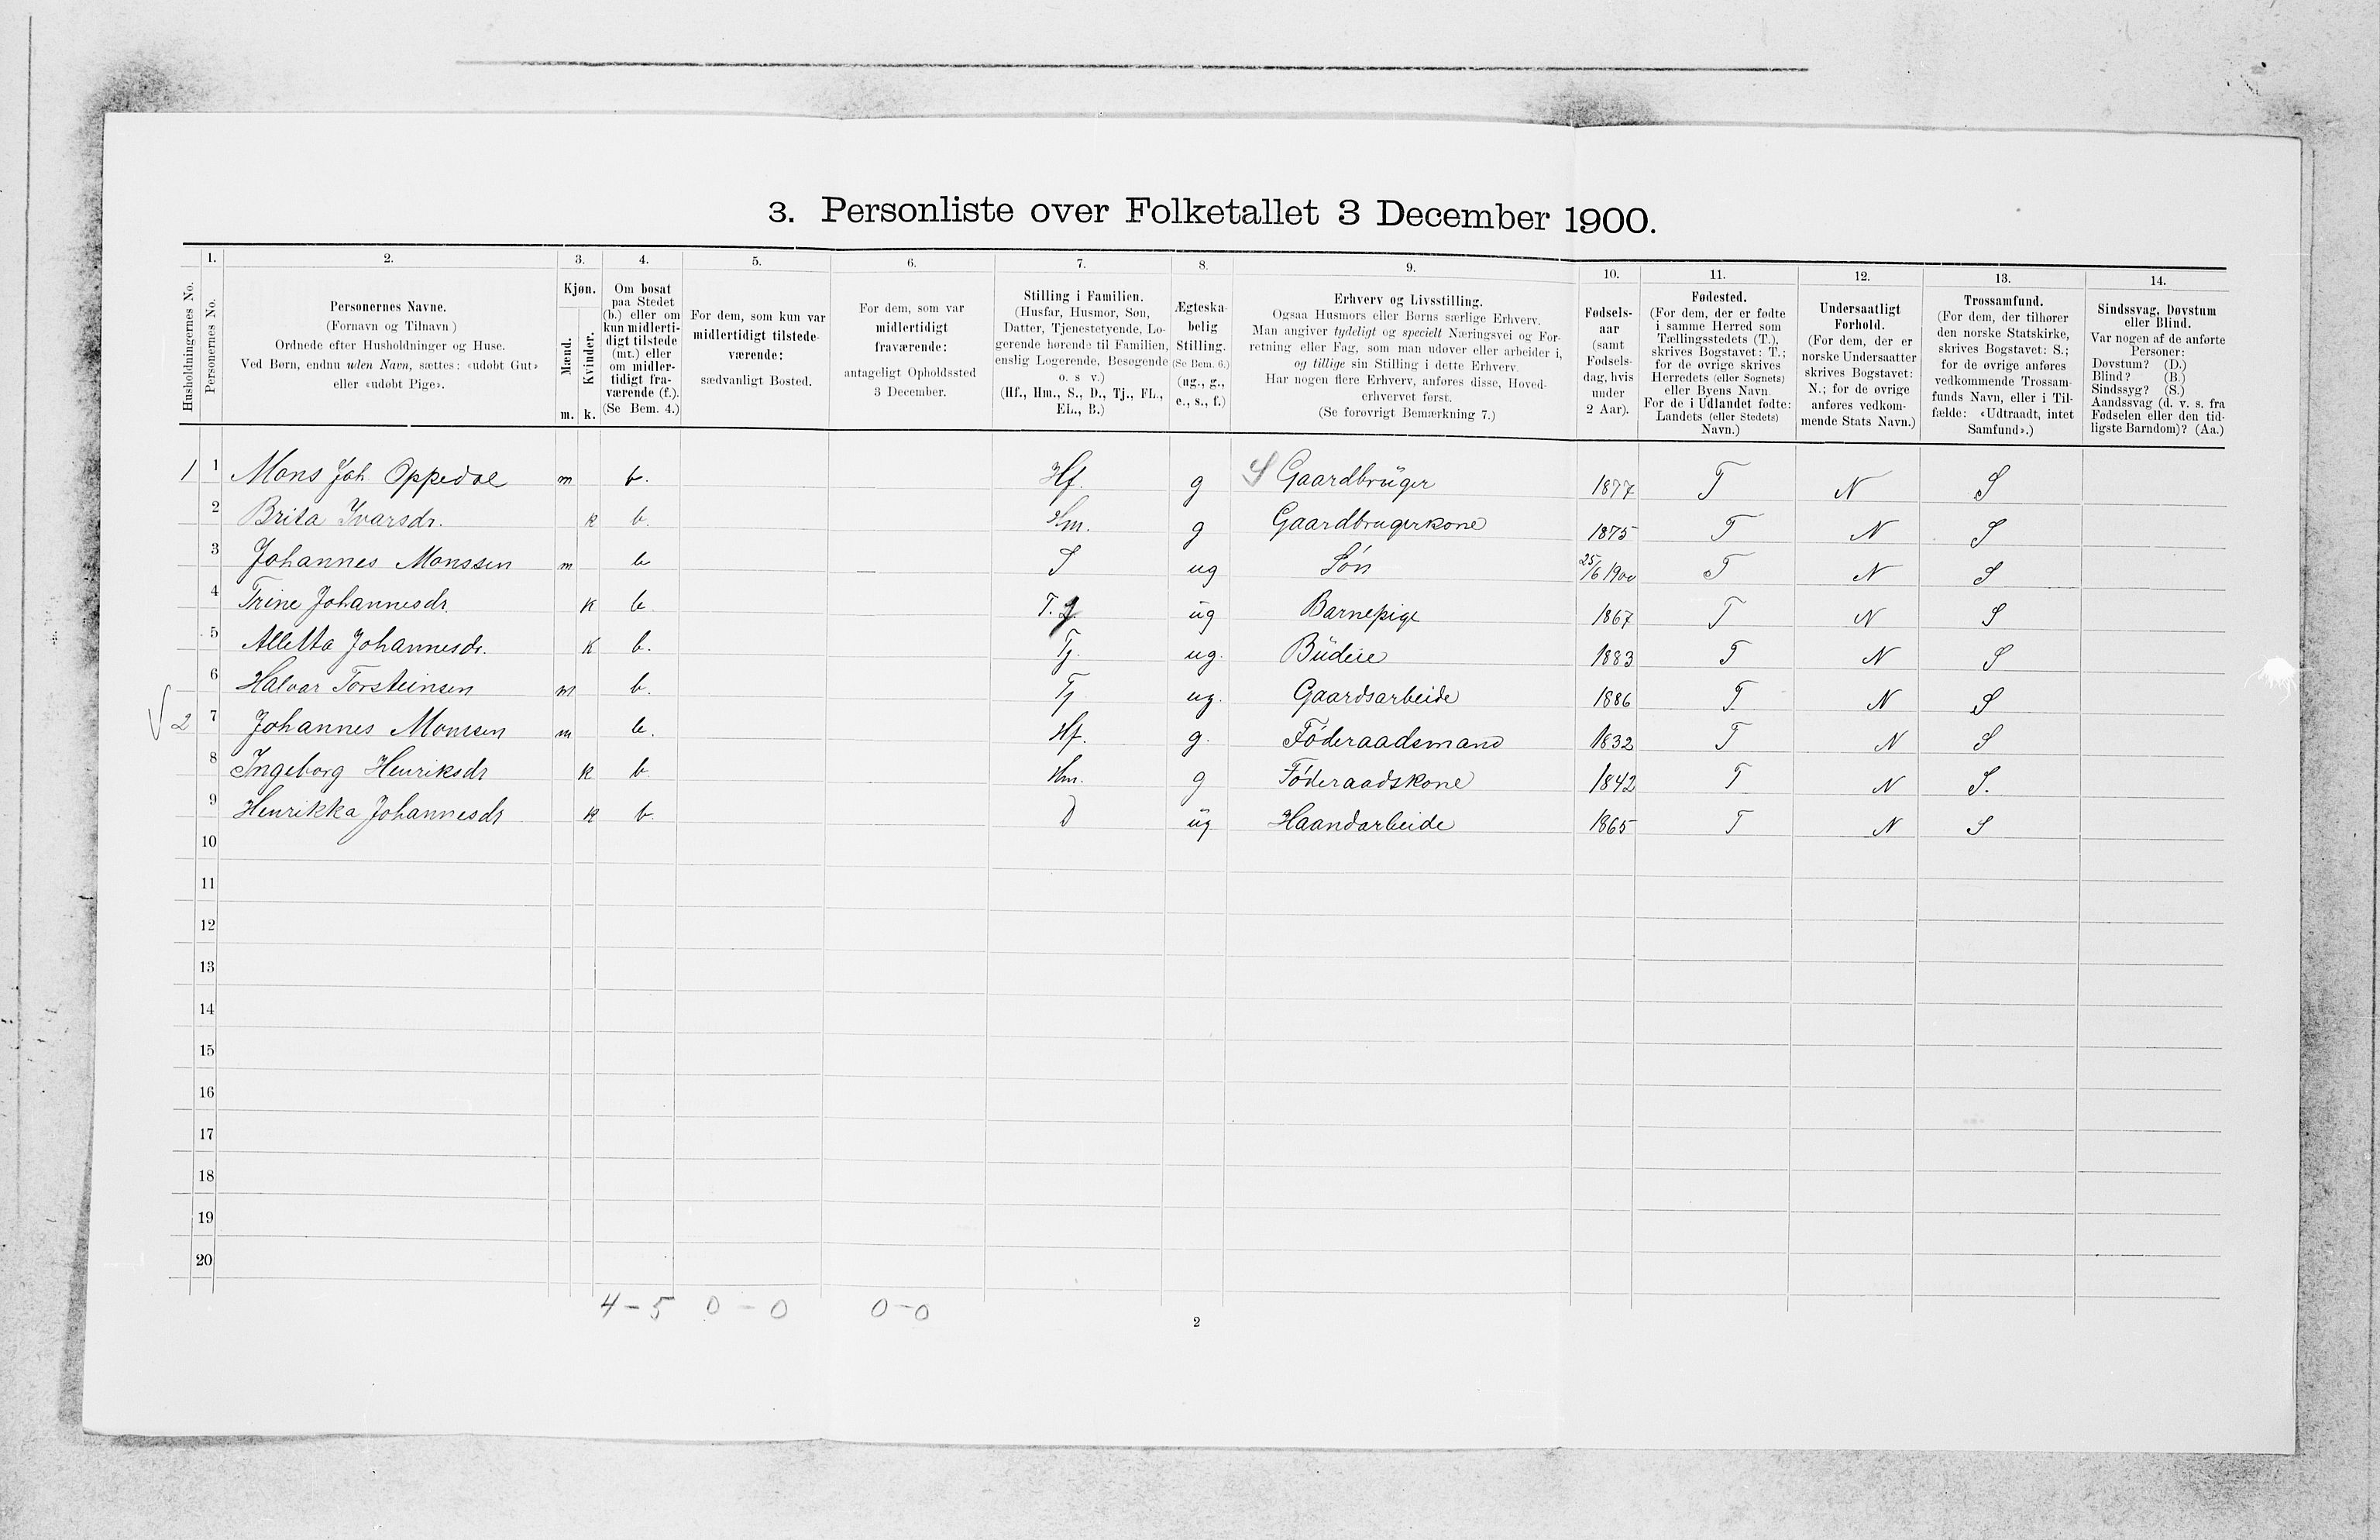 3. Personliste over Folketallet 3 December 1900.
1. 2. 3. 4. 5. 6. 7. 8. 9. 10. 11. 12. 13. 14.
Husholdningernes No.
Personernes No.
Personernes Navne.
(Fornavn og Tilnavn)
Ordnede efter Husholdninger og Huse.
Ved Børn, endnu uden Navn, sættes: «udøbt Gut»
eller «udøbt Pige».
Kjøn.
Mænd.
Kvinder.
m. k.
Om bosat
paa Stedet
(b.) eller om
kun midlerti-
digt tilstede
(mt.) eller
om midler-
tidigt fra-
værende (f.).
(Se Bem. 4.)
For dem, som kun var
midlertidigt tilstede-
værende:
sædvanligt Bosted.
For dem, som var
midlertidigt
fraværende:
antageligt Opholdssted
3 December.
Stilling i Familien.
(Husfar, Husmor, Søn,
Datter, Tjenestetyende, Lo-
gerende hørende til Familien,
enslig Logerende, Besøgende
o. s v.)
(Hf., Hm., S., D., Tj., FL.,
EL., B.)
Ægteska-
belig
Stilling.
(Se Bem. 6.)
(ug., g.,
e., s., f.)
Erhverv og Livsstilling.
Ogsaa Husmors eller Børns særlige Erhverv.
Man angiver tydeligt og specielt Næringsvei og For-
retning eller Fag, som man udøver eller arbeider i,
og tillige sin Stilling i dette Erhverv.
Har nogen flere Erhverv, anføres disse, Hoved-
erhvervet først.
(Se forøvrigt Bemærkning 7.)
Fødsels-
aar
(samt
Fødsels-
dag, hvis
under
2 Aar).
Fødested.
(For dem, der er fødte
i samme Herred som
Tællingsstedets (T.),
skrives Bogstavet: T.;
for de øvrige skrives
Herredets (eller Sognets)
eller Byens Navn.
For de i Udlandet fødte:
Landets (eller Stedets)
Navn.)
Undersaatligt
Forhold.
(For dem, der er
norske Undersaatter
skrives Bogstavet:
N.; for de øvrige
anføres vedkom-
mende Stats Navn.)
Trossamfund.
(For dem, der tilhører
den norske Statskirke,
skrives Bogstavet: S.;
for de øvrige anføres
vedkommende Trossam-
funds Navn, eller i Til-
fælde: «Udtraadt, intet
Samfund».)
Sindssvag, Døvstum
eller Blind.
Var nogen af de anførte
Personer:
Døvstum? (D.)
Blind? (B.)
Sindssyg? (S.)
Aandssvag (d. v. s. fra
Fødselen eller den tid-
ligste Barndom)? (Aa.)
1 1 Mons Joh. Oppedal m b. Hf. g S Gaardbrüger 1877 T N S
2 Brita Ivarsdr. k b. Hm. g Gaardbrugerkone 1875 T N S
3 Johannes Monssen m b S ug Søn 25/6 1900 T N S
4 Trine Johannesdr. k b T. j. ug Barnepige 1867 T N S
5 Alletta Johannesdr. k b. Tj. ug. Büdeie 1883 T N S
6 Halvar Torsteinsen m b. Tj ug. Gaardsarbeide 1886 T N S
2 7 Johannes Monssen m b. Hf. g. Føderaadsmand 1832 T N S
8 Ingeborg Henriksdr k b. Hm. g Føderaadskone 1842 T N S.
9 Henrikka Johannesdr k b. D ug Haandarbeide 1865 T N S
10
11
12
13
14
15
16
17
18
19
20
4 – 5 0 – 0 0 – 0
2